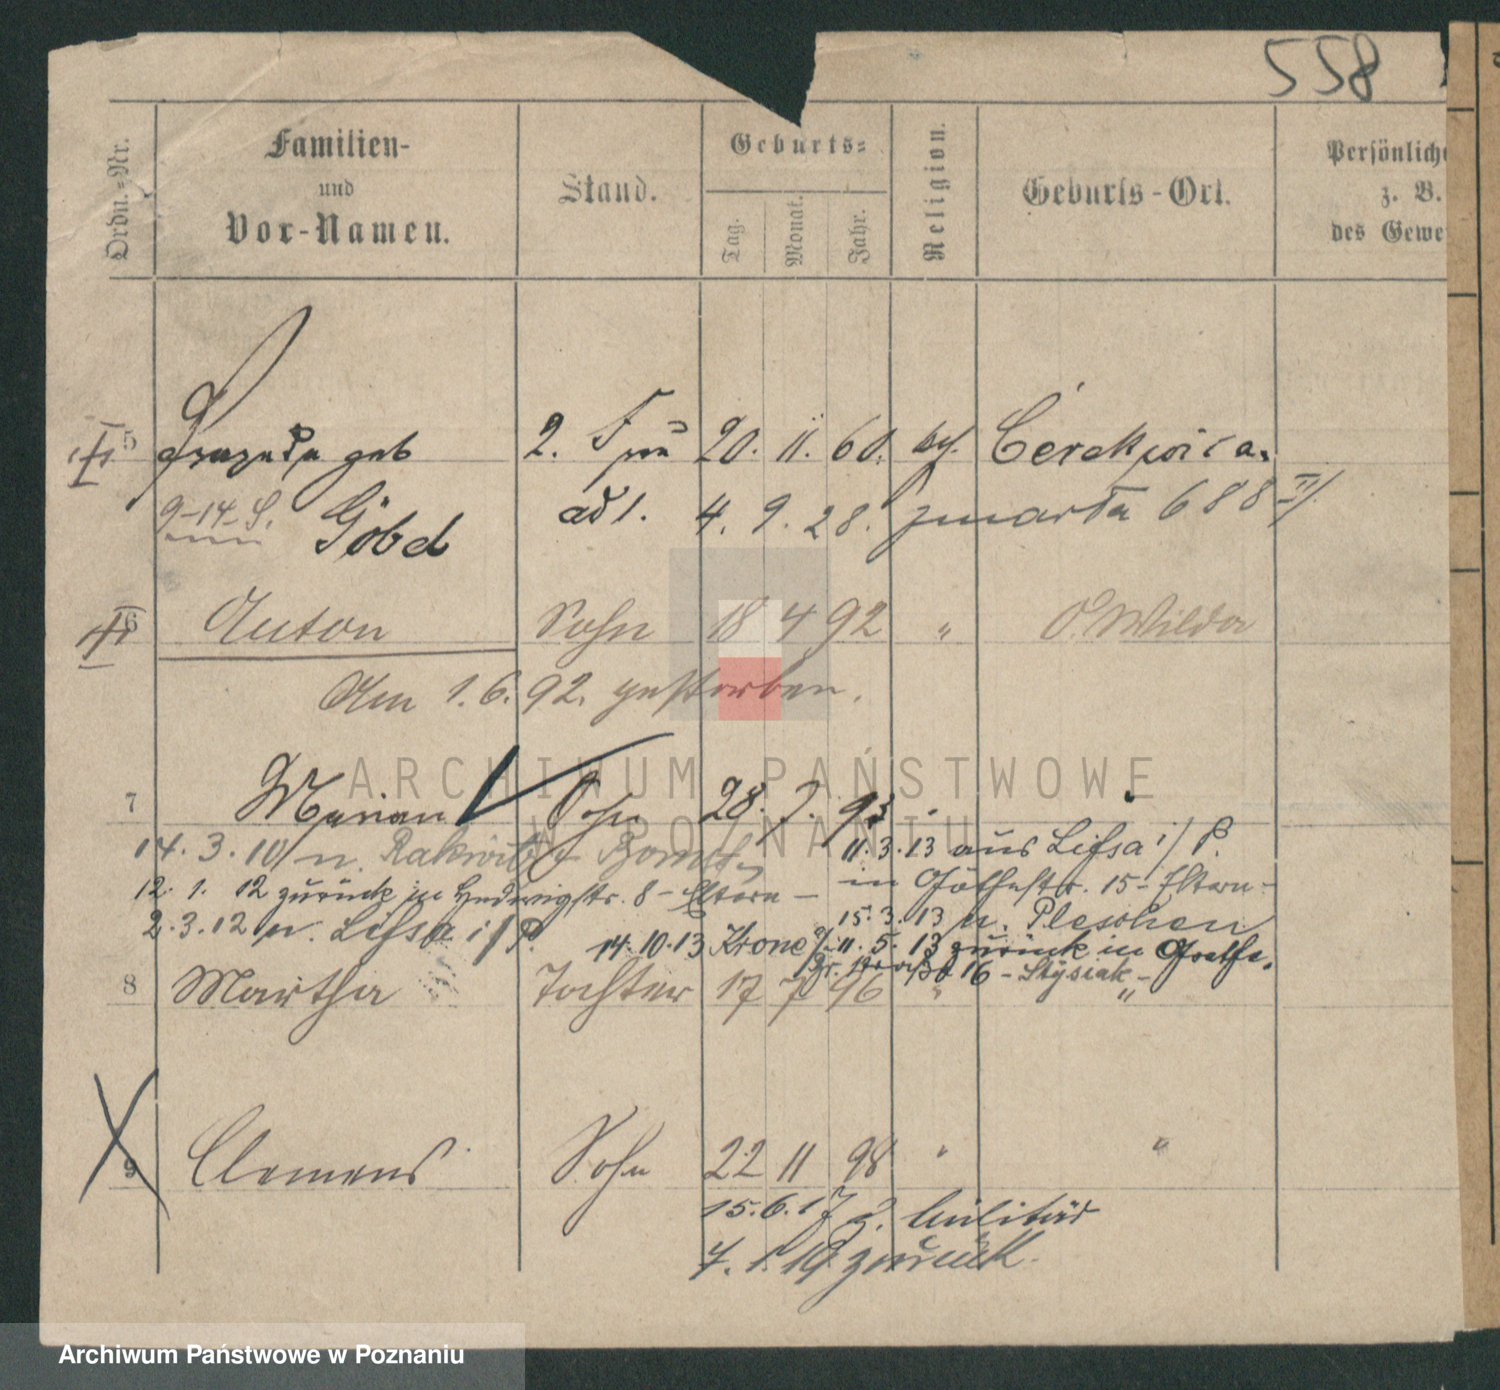 558
Ordn.-Nr.
Familien-
und
Vor-Namen.
Stand.
Geburts-
Tag.
Monat.
Jahr.
Religion.
Geburts-Ort.
Persönliche
z. B.
des Gewe
5 geb 2. Frau 20. 11. 60. kf. Cerekwica.
9-14- S. Göbel ad 1. 4. 9. 28. zmarła 688 II/
6 Anton Sohn 18 4 92 " O. Wilda
Am 1.6.92. gestorben.
7 Marian Sohn 28. 7. 93 "
14. 3. 10/ n. Rakwitz Bomst
11. 3. 13 aus Lissa i/P.
12. 1. 12 zurück in Hedwigstr. 8 - Eltern -
in Göthestr. 15 - Eltern -
2. 3. 12 n. Lissa i/P.
15. 3. 13 n. Pleschen
14. 10. 13 Krone a/Br.
11. 5. 13 zurück in Goethe.
straße 16 - Stysiak -
8 Martha Tochter 17 7 96 " "
9 Clemens Sohn 22 11 98 " "
15. 6. 17 z. Militär
7. 1. 19 zurück.
ARCHIWUM PAŃSTWOWE
W POZNANIU
Archiwum Państwowe w Poznaniu